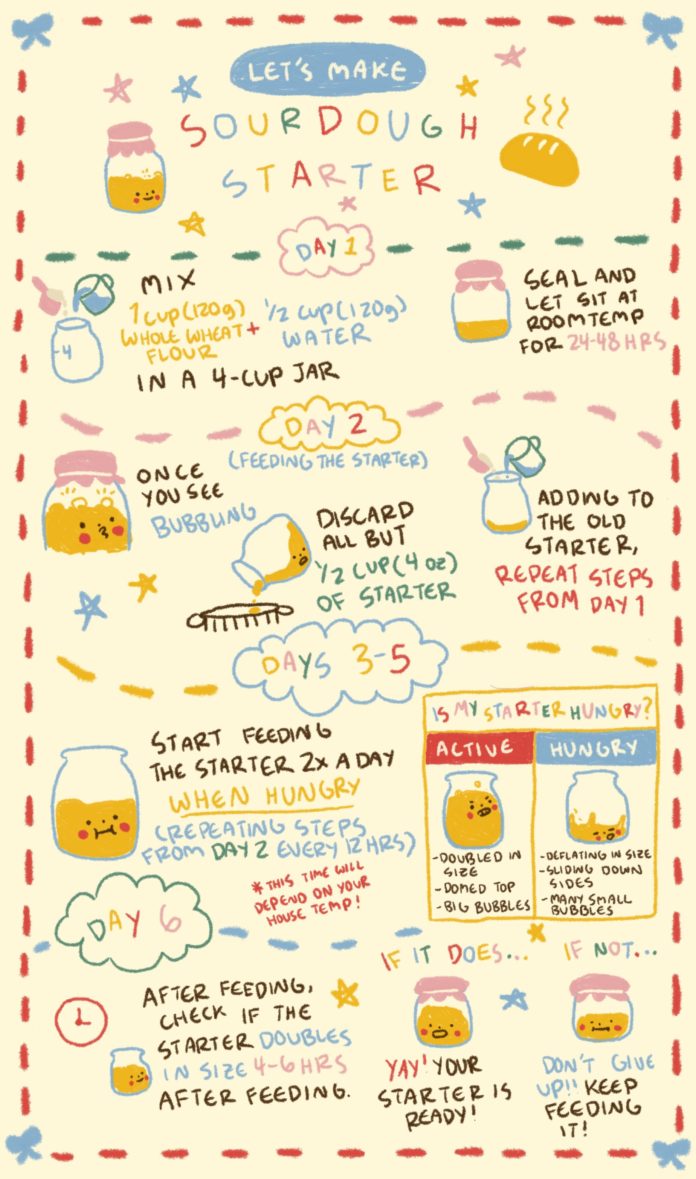 LET'S MAKE
SOURDOUGH
STARTER
DAY 1
MIX
1 CUP (120g)
WHOLE WHEAT +
FLOUR
1/2 CUP (120g)
WATER
IN A 4-CUP JAR
-4
SEAL AND
LET SIT AT
ROOM TEMP
FOR 24-48 HRS
DAY 2
(FEEDING THE STARTER)
ONCE
YOU SEE
BUBBLING
DISCARD
ALL BUT
1/2 CUP (4 OZ)
OF STARTER
ADDING TO
THE OLD
STARTER,
REPEAT STEPS
FROM DAY 1
DAYS 3-5
START FEEDING
THE STARTER 2X A DAY
WHEN HUNGRY
(REPEATING STEPS
FROM DAY 2 EVERY 12 HRS)
*THIS TIME WILL
DEPEND ON YOUR
HOUSE TEMP!
IS MY STARTER HUNGRY?
ACTIVE
-DOUBLED IN
SIZE
-DOMED TOP
-BIG BUBBLES
HUNGRY
-DEFLATING IN SIZE
-SLIDING DOWN
SIDES
-MANY SMALL
BUBBLES
DAY 6
AFTER FEEDING,
CHECK IF THE
STARTER DOUBLES
IN SIZE 4-6 HRS
AFTER FEEDING.
IF IT DOES...
YAY! YOUR
STARTER IS
READY!
IF NOT...
DON'T GIVE
UP!! KEEP
FEEDING
IT!